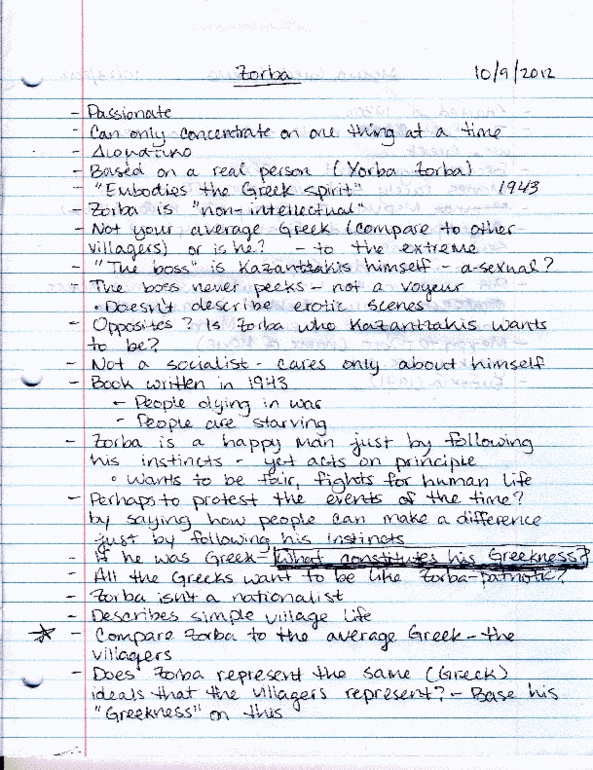 Zorba 10/9/2012
- Passionate
- Can only concentrate on one thing at a time
- Based on a real person (Yorba Zorba)
- "Embodies the Greek spirit" 1943
- Zorba is "non-intellectual"
- Not your average Greek (compare to other
villagers) or is he? - to the extreme
- "The boss" is Kazantzakis himself - a-sexual?
- The boss never peeks - not a voyeur
• Doesn't describe erotic scenes
- Opposites? Is Zorba who Kazantzakis wants
to be?
- Not a socialist - cares only about himself
- Book written in 1943
- People dying in war
- People are starving
- Zorba is a happy man just by following
his instincts - yet acts on principle
• Wants to be fair, fights for human life
- Perhaps to protest the events of the time?
by saying how people can make a difference
just by following his instincts
- If he was Greek - What constitutes his Greekness?
- All the Greeks want to be like Zorba-patriotic?
- Zorba isn't a nationalist
- Describes simple village life
☆ - Compare Zorba to the average Greek - the
villagers
- Does Zorba represent the same (Greek)
ideals that the villagers represent? - Base his
"Greekness" on this